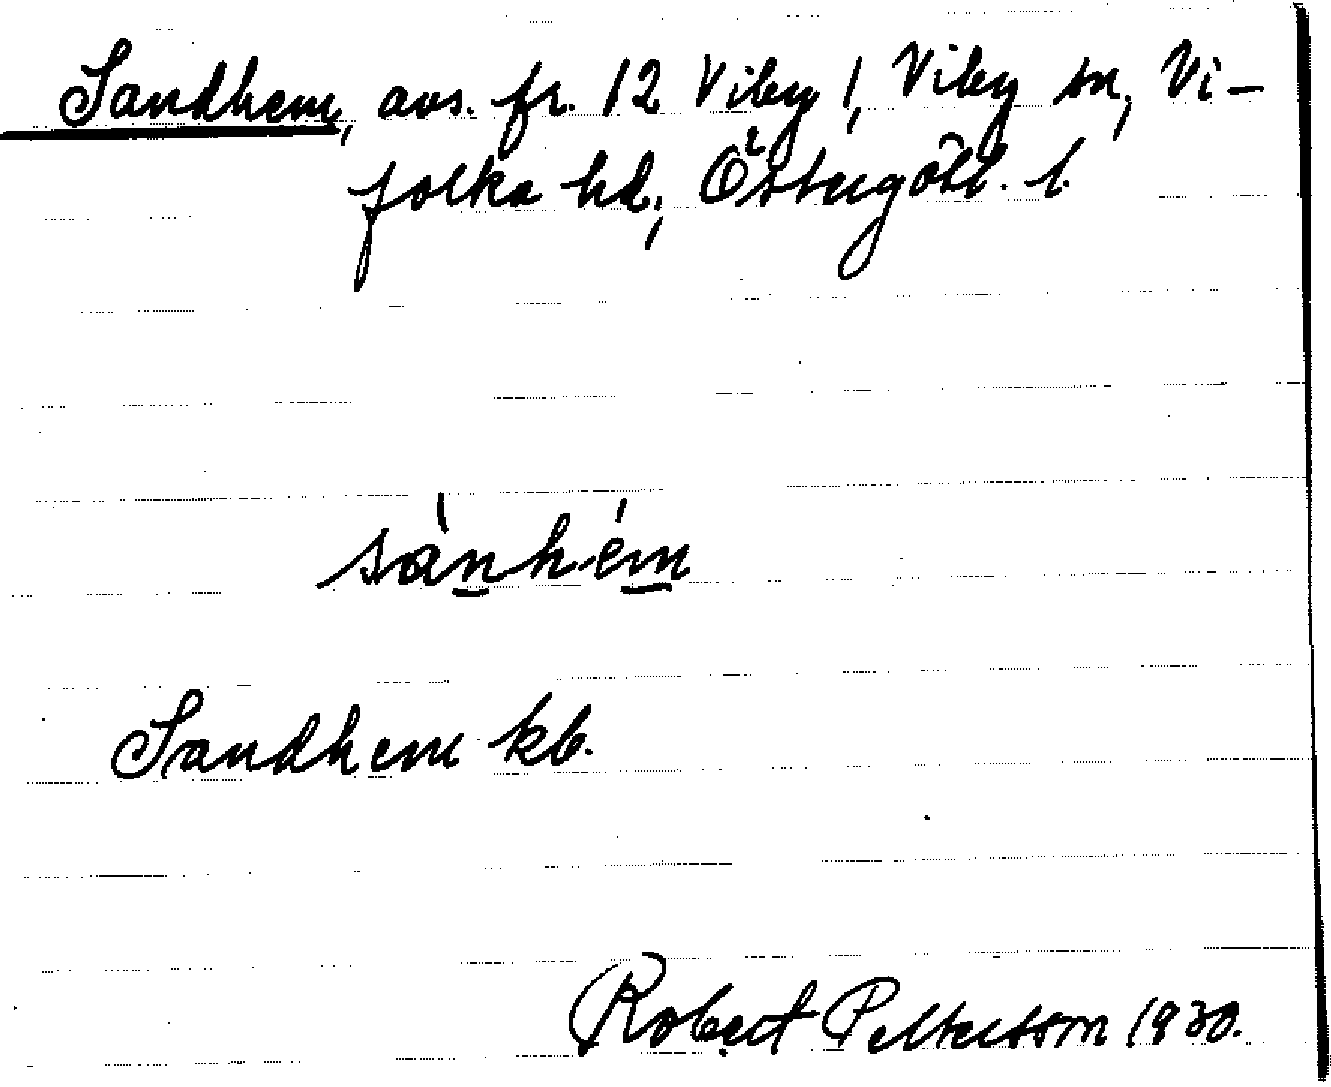 Sandhem, avs. fr. 12 Viby 1, Viby sn, Vi-
folka hd, Östergötl. l.
sànhém
Sandhem kb.
Robert Pettersson 1930.